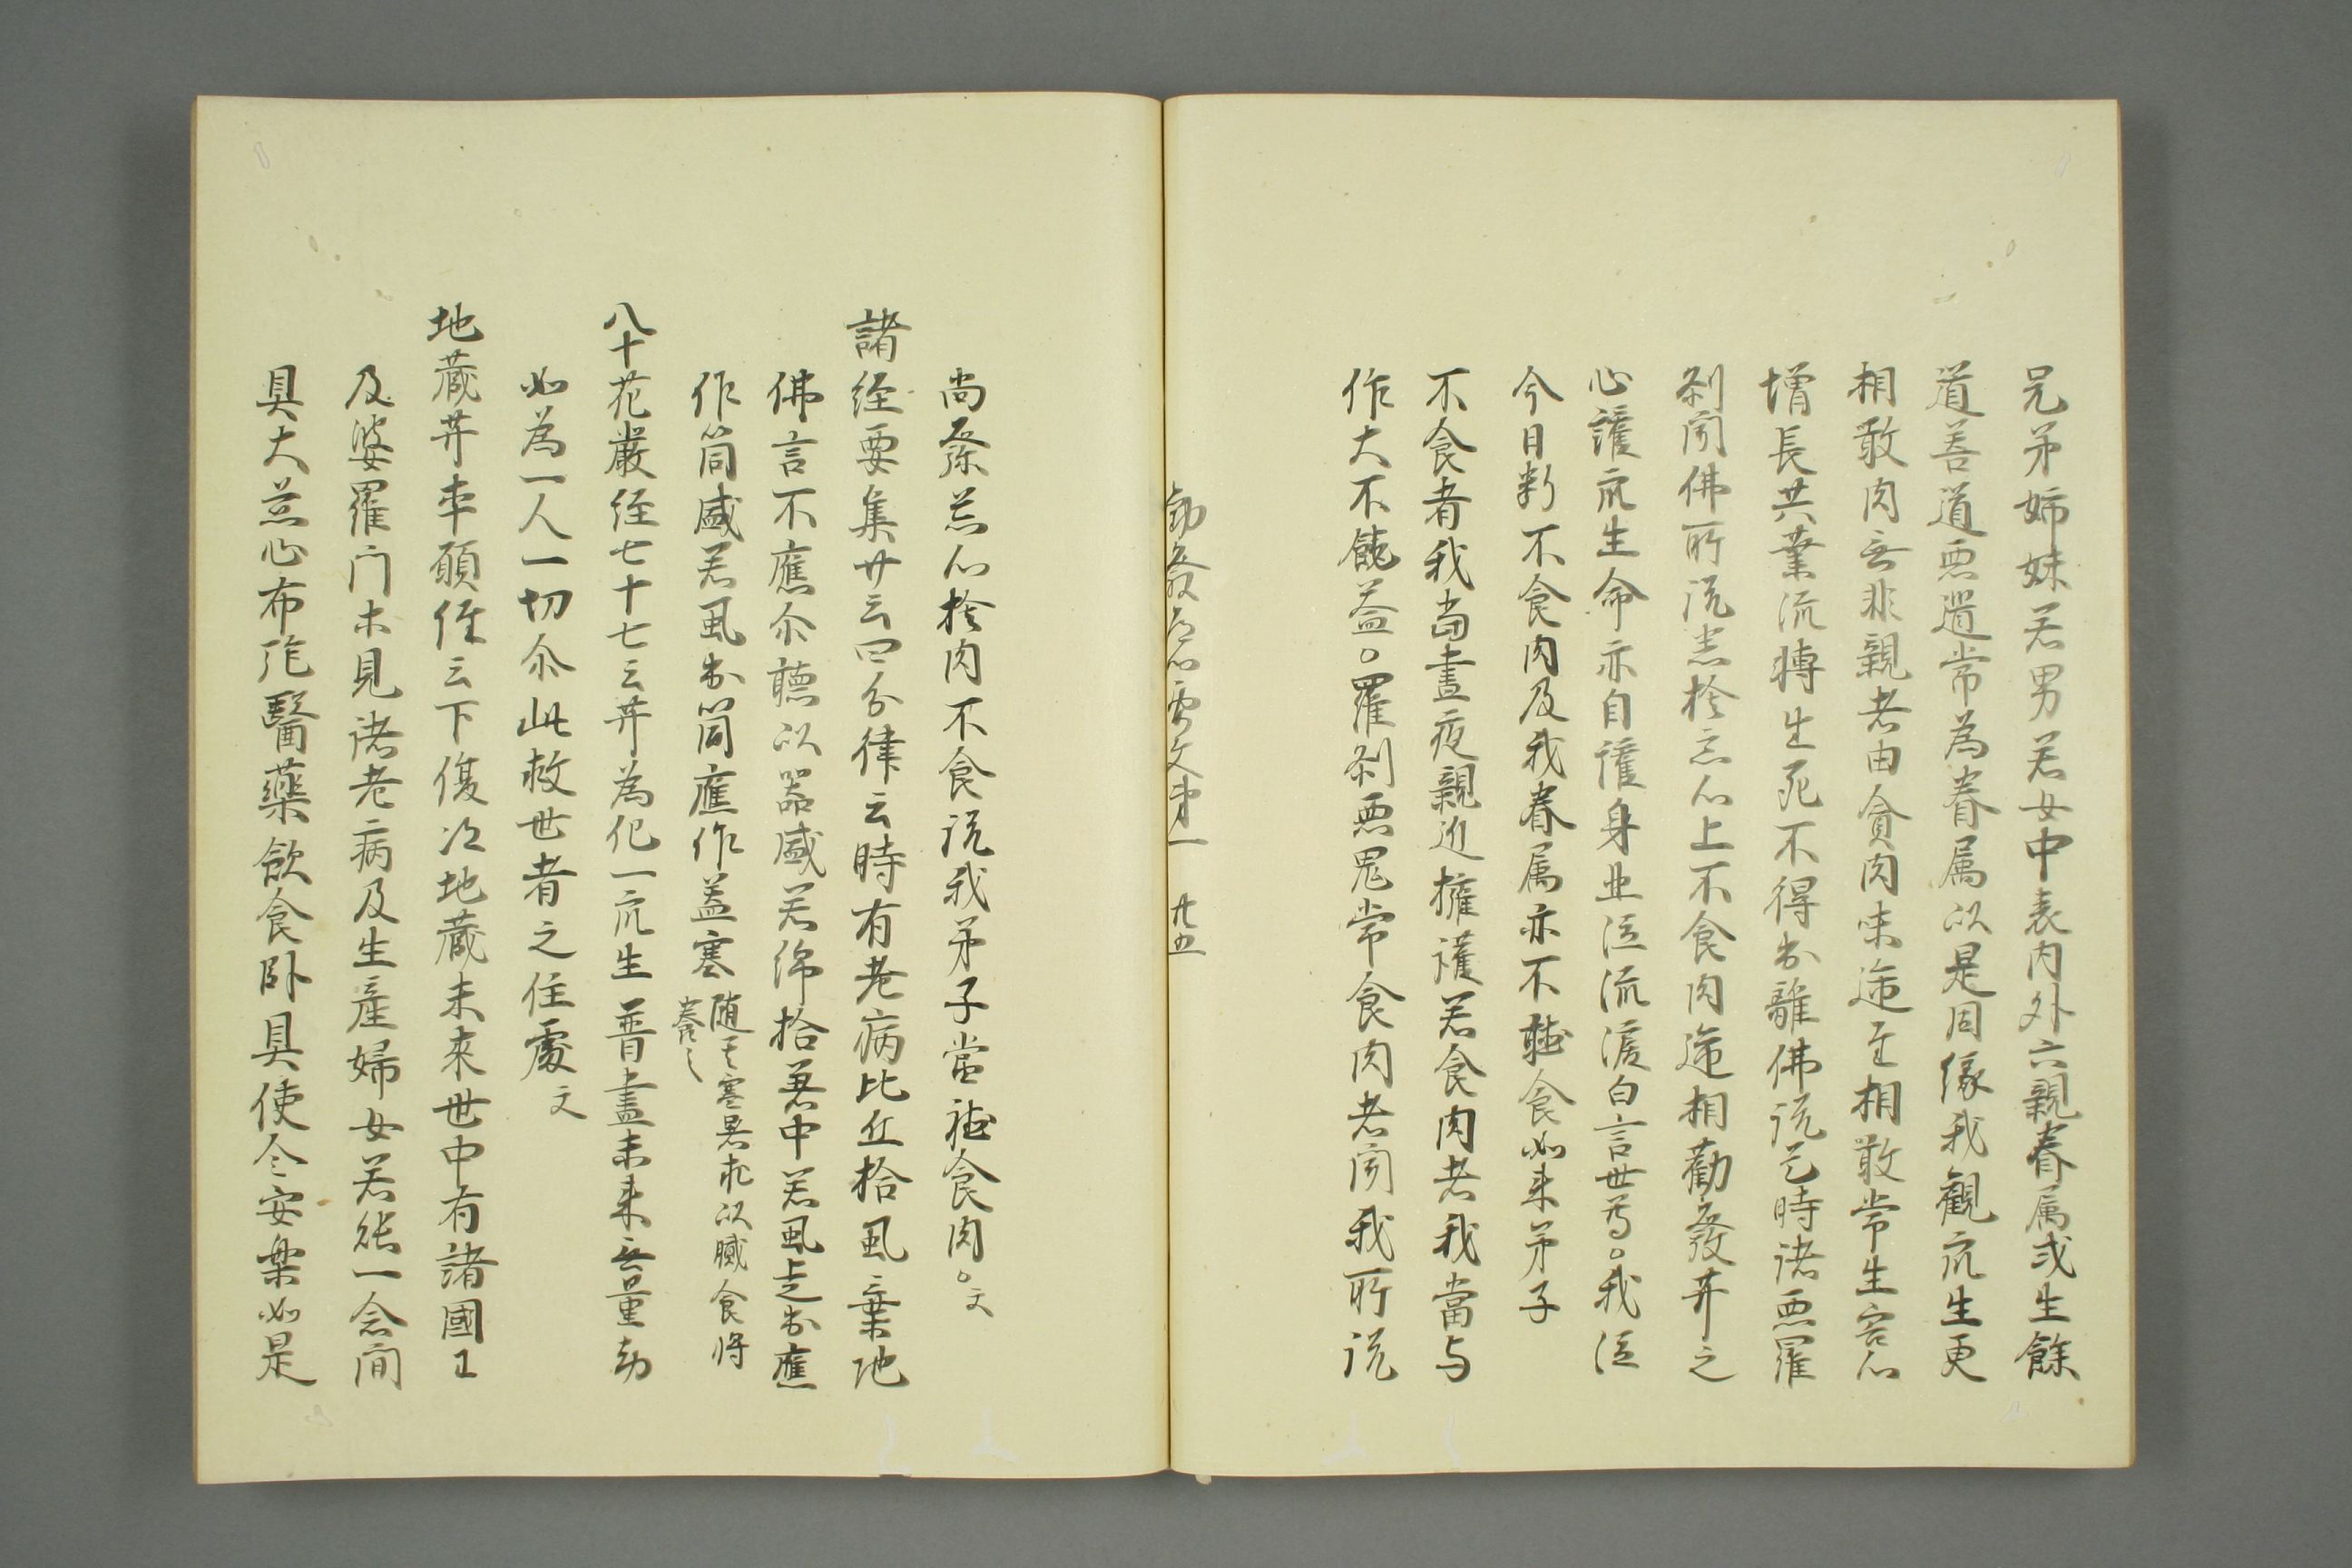 兄弟姉妹若男若女中表内外六親眷属或生餘
道善道悪道常為眷属以是因縁我観衆生更
相敢肉無非親者由貪肉味逓互相敢常生害心
増長苦業流轉生死不得出離佛説是時諸悪羅
刹聞佛所説悉捨悪心上不食肉逓相勧發菩之
心護衆生命亦自護身
泣流涙白言世尊。我従
今日断不食肉及我眷属亦不聴食如来弟子
不食者我当晝夜親近擁護若食肉者我當与
作大不饒益。羅刹悪鬼常食肉者聞我所説
勧發
心要文第一 廿五
尚發慈心捨肉不食説我弟子當聴食肉。文
諸経要集廿云四分律云時有老病比丘拾虱棄地
佛言不應尓聴以器盛若綿拾著中若虱走出應
作筒盛若虱出筒應作盖塞
随其寒暑
以膩食将
養之
八十花厳経七十七云菩為化一衆生普盡未来無量劫
如為一人一切尓此救世者之住處文
地蔵菩本願経云下復次地蔵未来世中有諸國王
及婆羅门ホ見諸老病及生産婦女若能一念間
具大慈心布施醫藥飲食卧具使令安楽如是